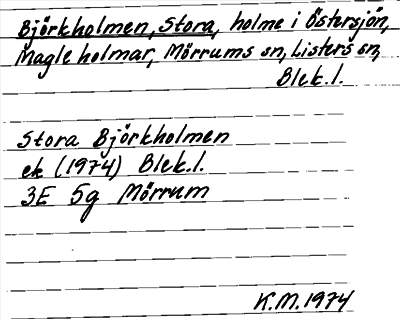 Björkholmen, Stora, holme i Östersjön,
Magle holmar, Mörrums sn, Listers sn,
Blek.l.
Stora Björkholmen
ek (1974) Blek.l.
3E 5g Mörrum
K.M. 1974